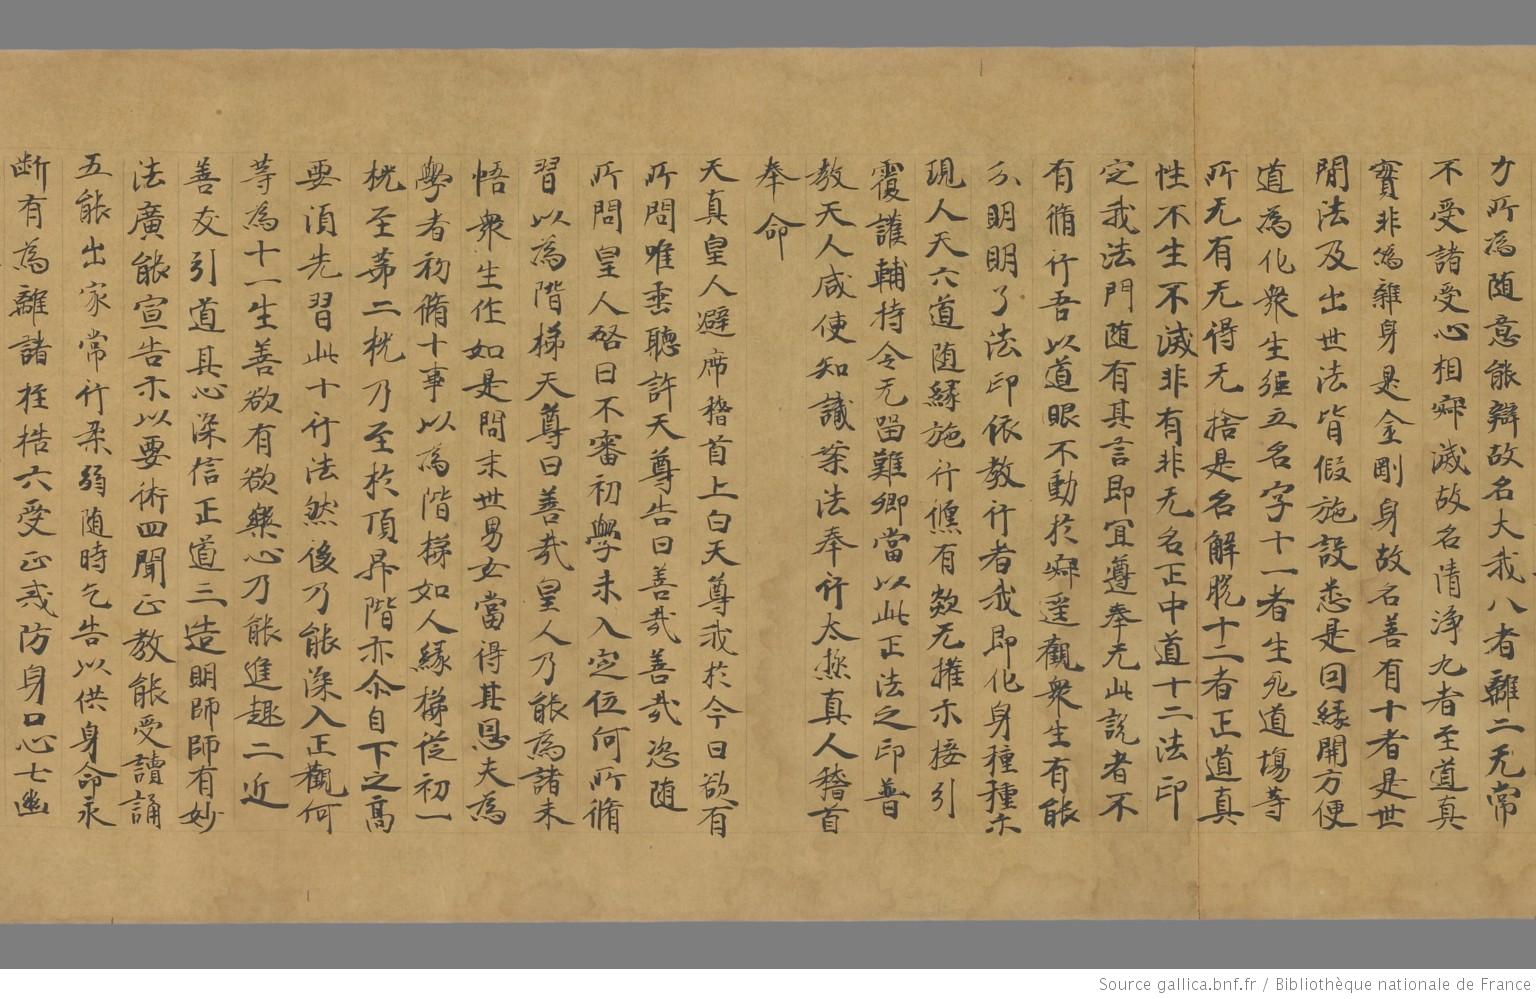 力所為随意能辯故名大我八者離二无常
不受諸受心相寂滅故名清淨九者至道真
實非偽雜身是金剛身故名善有十者是世
間法及出世法皆假施設悉是回緣開方便
道為化衆生強立名字十一者生死道場等
所无有无得无捨是名解脱十二者正道真
性不生不滅非有非无名正中道十二法印
定我法門随有其言即宜遵奉无此說者不
有脩行吾以道眼不動於寂遥觀衆生有能
分明明了法印依教行者我即化身種種示
現人天六道随緣施行儻有欸无擁示接引
覆護輔持令无留難卿當以此正法之印普
教天人咸使知識案法奉行太極真人稽首
奉命
天真皇人避席稽首上白天尊我於今日欲有
所問唯垂聽許天尊告曰善哉善哉恣随
所問皇人啓曰不審初學未入定位何所脩
習以為階梯天尊曰善哉皇人乃能為諸未
悟衆生作如是問末世男女當得其恩夫為
學者初脩十事以為階梯如人緣梯從初一
桄至苐二桄乃至於頂昇階亦尒自下之高
要須先習此十行法然後乃能深入正觀何
等為十一生善欲有欲樂心乃能進趣二近
善友引道其心深信正道三造明師師有妙
法廣能宣告示以要術四聞正教能受讀誦
五能出家常行柔弱随時乞告以供身命永
断有為離諸桎梏六受正戒防身口心七幽